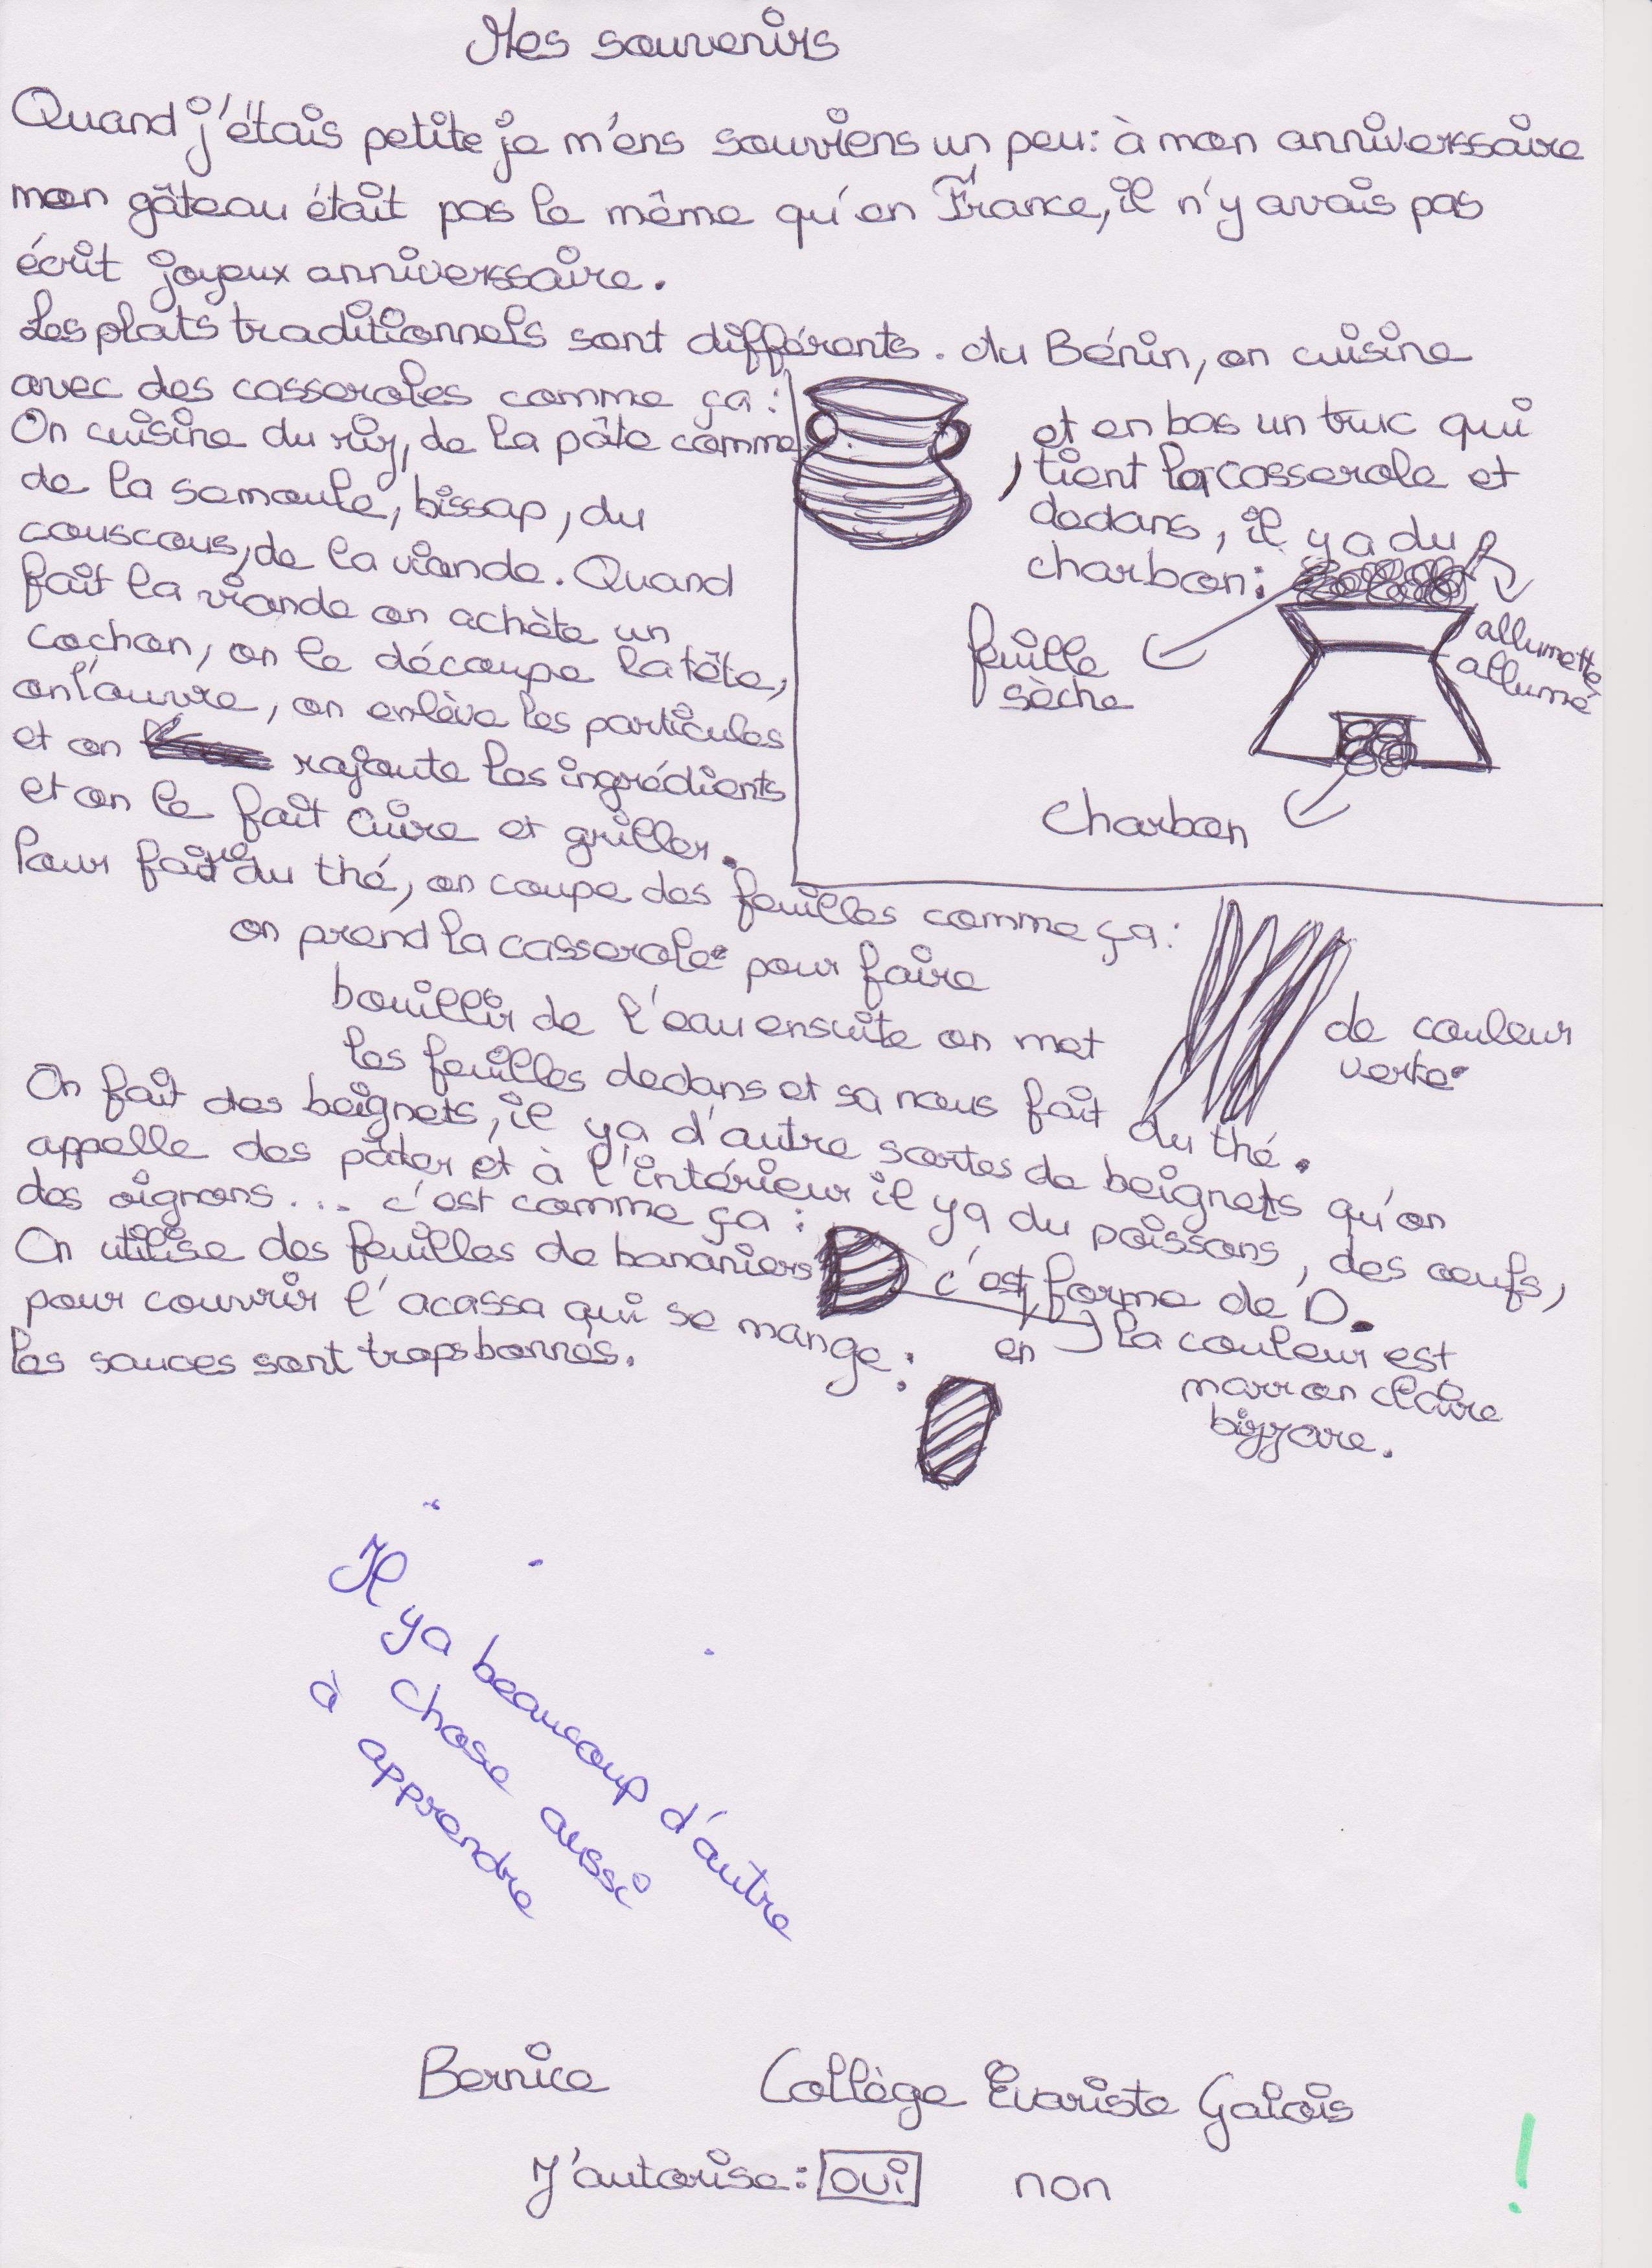 Mes souvenirs
Quand j'étais petite je m'ens souviens un peu: à mon anniverssaire
mon gâteau était pas le même qu'en France, il n'y avais pas
écrit joyeux anniverssaire.
Les plats traditionnels sont différents. du Bénin, on cuisine
avec des casseroles comme ça:
, et en bas un truc qui
tient la casserole et
dedans, il y a du
charbon:
feuille
sèche
allumette
allumé
charbon
On cuisine du riz, de la pâte comme
de la semoule, bissap, du
couscous, de la viande. Quand
fait la viande on achète un
cochon, on le découpe la tête,
on l'ouvre, on enlève les particules
et on rajoute les ingrédients
et on le fait cuire et griller.
Pour faire du thé, on coupe des feuilles comme ça:
de couleur
verte.
on prend la casserole pour faire
bouillir de l'eau ensuite on met
les feuilles dedans et sa nous fait du thé.
On fait des beignets, il y a d'autre sortes de beignets qu'on
appelle des pâter et à l'intérieur il y a du poissons, des oeufs,
des oignons... c'est comme ça:
c'est en forme de D.
la couleur est
marron claire
bizzare.
On utilise des feuilles de bananiers
pour couvrir l'acassa qui se mange:
les sauces sont trops bonnes.
Il y a beaucoup d'autre
chose aussi
à apprendre
Bernice Collège Evariste Galois
J'autorise: oui non
!